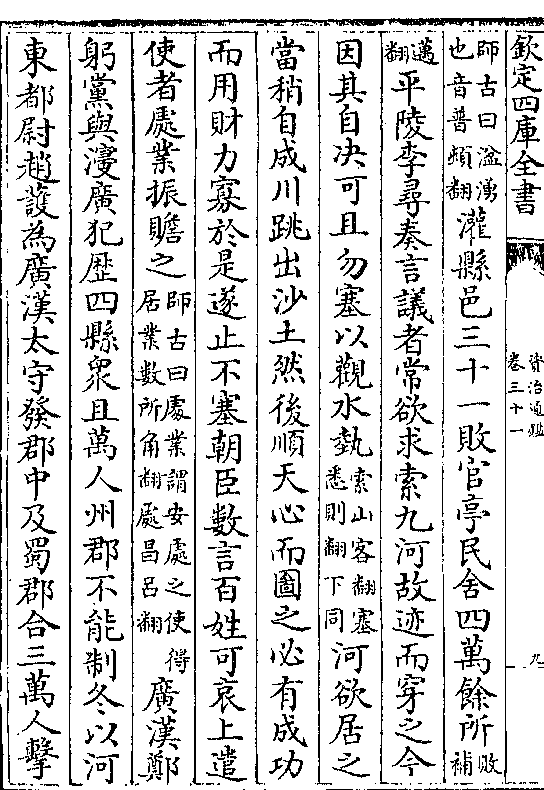 欽定四庫全書
資治通鑑
卷三十一
九
師古曰溢湧
也音普頓翻
灌縣邑三十一敗官亭民舍四萬餘所
敗補
邁翻
平陵李尋奏言議者常欲求索九河故迹而穿之今
因其自決可且勿塞以觀水埶
索山客翻塞
悉則翻下同
河欲居之
當稍自成川跳出沙土然後順天心而圖之必有成功
而用財力寡於是遂止不塞朝臣數言百姓可哀上遣
使者處業振贍之
師古曰處業謂安處之使得
居業數所角翻處昌呂翻
廣漢鄭
躬黨與濅廣犯歷四縣衆且萬人州郡不能制冬以河
東都尉趙護為廣漢太守發郡中及蜀郡合三萬人擊